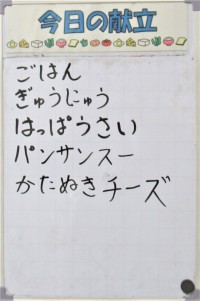 今日の献立
ごはん
ぎゅうじゅう
はっぽうさい
パンサンスー
かたぬきチーズ